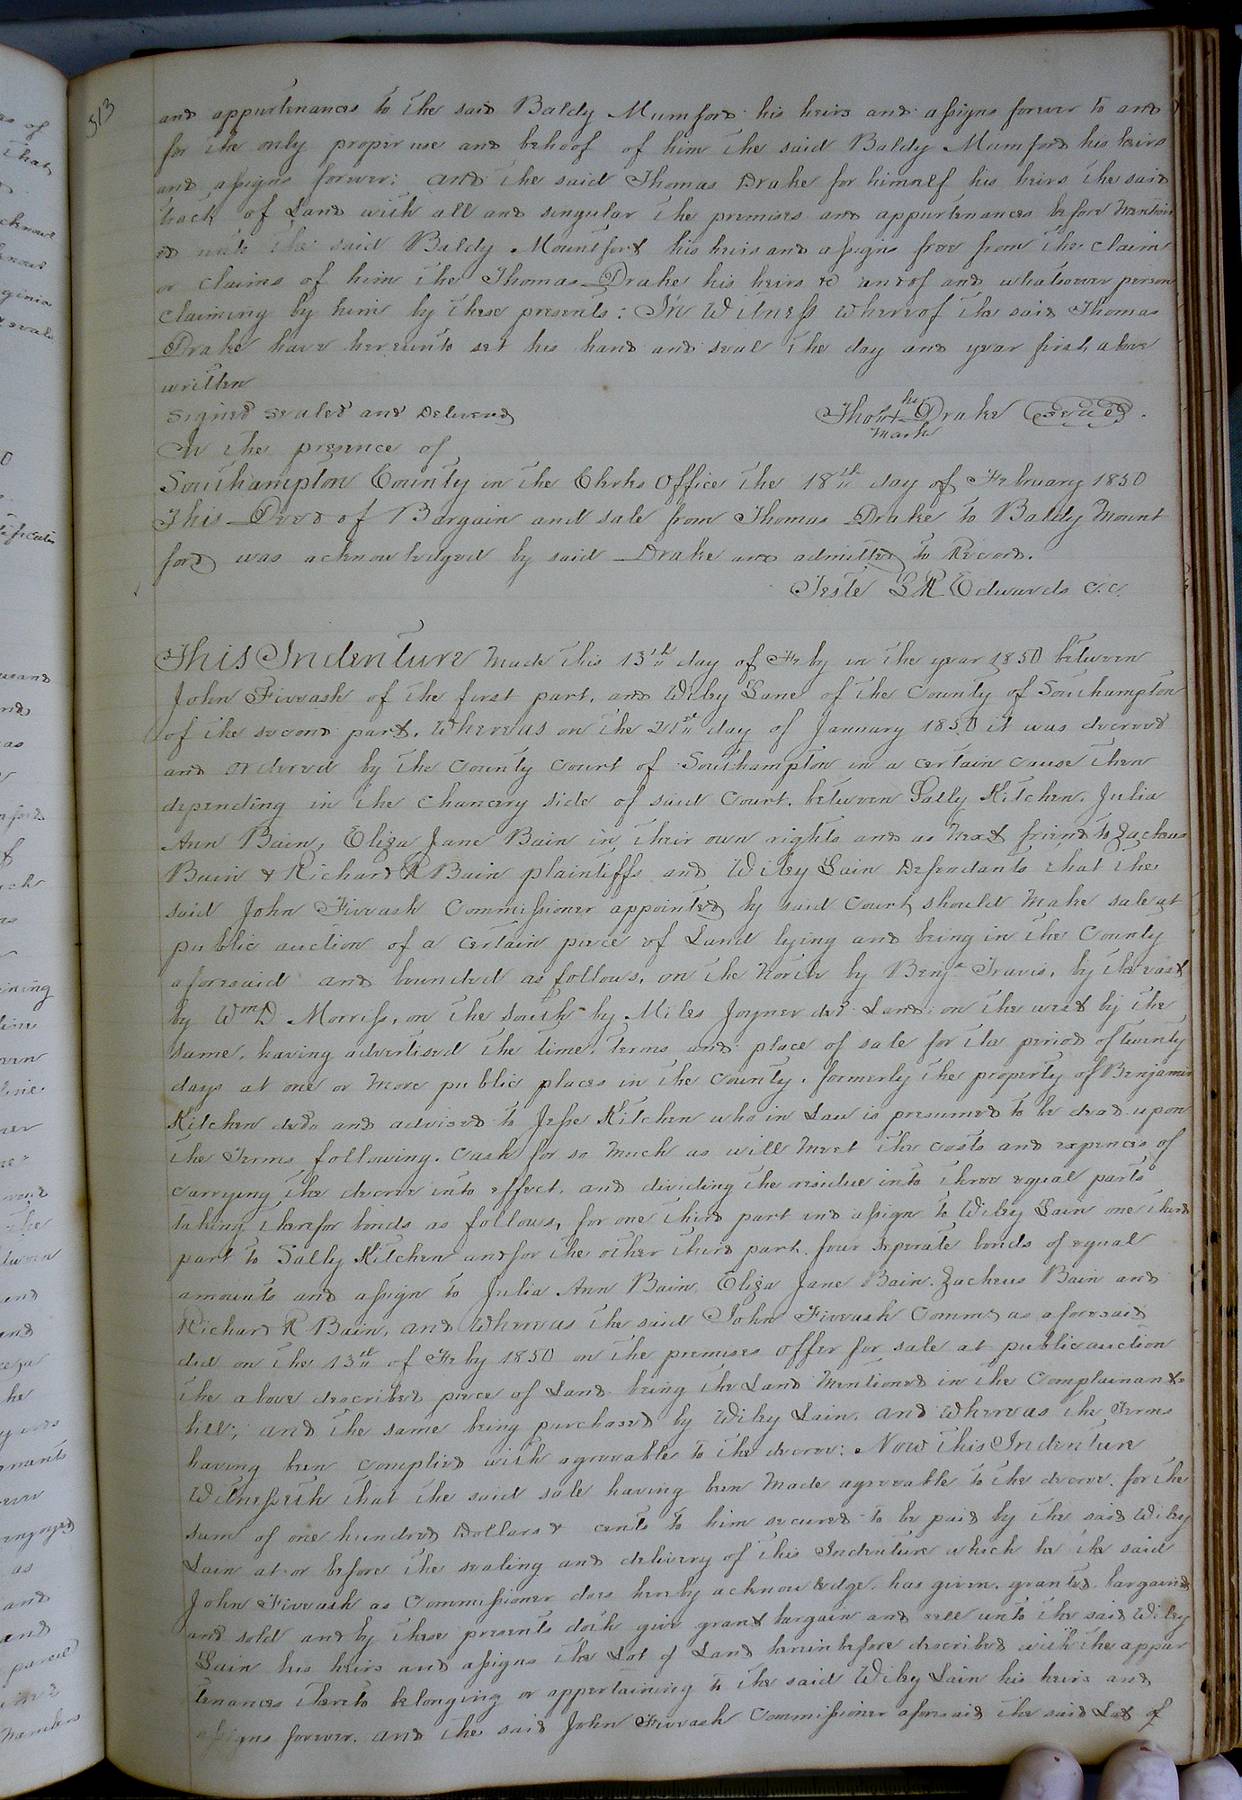 513
and appurtenances to the said Baldy Mumford his heirs and assigns forever to and
for the only proper use and behoof of him the said Baldy Mumford his heirs
and assigns forever: and the said Thomas Drake for himself his heirs the said
track of Land with all and singular the premises and appurtenances before mention
ed unto the said Baldy Mountford his heirs and assigns free from the claim
or claims of him the Thomas Drake his heirs &c and of and whatsoever person
claiming by him by these presents: In Witness whereof the said Thomas
Drake have hereunto set his hand and seal the day and year first above
written
Signed sealed and Delivered
his
Thos + Drake Seal
mark
In the presence of
Southampton County in the Clerks Office the 18th day of February 1850
This Deed of Bargain and sale from Thomas Drake to Baldy Mount
ford was acknowledged by said Drake and admitted to Record.
Teste L R Edwards c.c.
This Indenture Made this 13th day of Feby in the year 1850 between
John Fivrash of the first part, and Wiley Lane of the County of Southampton
of the second part. Whereas on the 21st day of January 1850 it was decreed
and ordered by the County Court of Southampton in a certain cause then
depending in the Chancery side of said Court, between Sally Kitchen, Julia
Ann Bain, Eliza Jane Bain in their own rights and as Next friend to Zacheus
Bain & Richard R Bain plaintiffs and Wiley Lain Defendants that the
said John Fivrash Commissioner appointed by said Court should Make sale at
public auction of a certain piece of Land lying and being in the County
aforesaid and bounded as follows, on the North by Benja Travis, by the east
by Wm D Morriss, on the south by Miles Joyner decd Land: on the west by the
same, having advertised the time, terms and place of sale for the period of twenty
days at one or more public places in the County. formerly the property of Benjamin
Kitchen decd and advised to Jesse Kitchen who in Law is presumed to be dead upon
the Terms following. Cash for so Much as will Meet the costs and expences of
carrying the decree into effect, and dividing the residue into three equal parts
taking therefor bonds as follows, for one third part and assign to Wiley Lain one third
part to Sally Kitchen and for the other third part four seperate bonds of equal
amounts and assign to Julia Ann Bain, Eliza Jane Bain, Zacheus Bain and
Richard R Bain, and Whereas the said John Fivrash Commr as aforesaid
did on the 13th of Feby 1850 on the premises offer for sale at public auction
the above described piece of Land being the Land Mentioned in the Complainants
bill; and the same being purchased by Wiley Lain, and whereas the Terms
having been complied with agreeable to the decree: Now This Indenture
Witnesseth that the said sale having been Made agreeable to the decree, for the
sum of one hundred Dollars & cents to him secured to be paid by the said Wiley
Lain at or before the sealing and delivery of this Indenture which he the said
John Fivrash as Commissioner does hereby acknowledge, has given, granted, bargained
and sold and by these presents doth give grant bargain and sell unto the said Wiley
Lain his heirs and assigns the Lot of Land herein before described with the appur
tenances thereto belonging or appertaining to the said Wiley Lain his heirs and
assigns forever. and the said John Fivrash Commissioner aforesaid the said Lot of